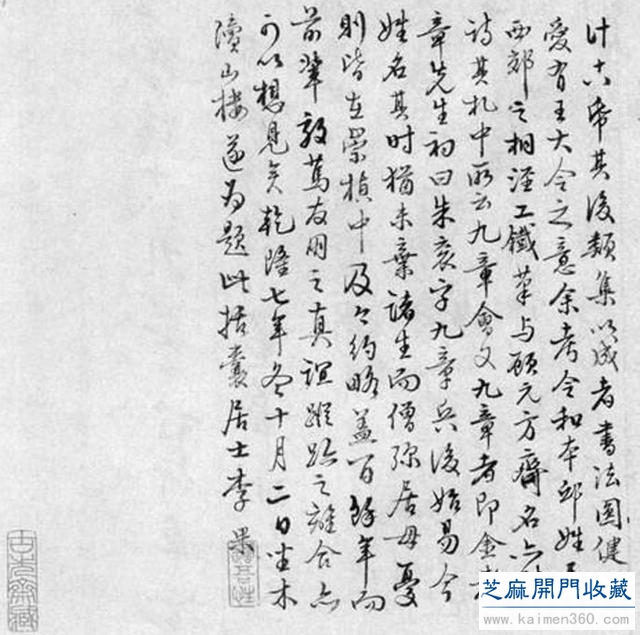 计十帋其后类集以成者书法图健
爱有王大令之意余考令和本邱姓
西郊之相泾工铁笔与顾元方齊名
诗其札中所云九章会文九章者即金
章先生初曰朱衮字九章兵後始易今
姓名其时猶未棄諸生而僧弥居母憂
則皆在崇禎中及今約略盖百餘年而
前輩敦篤友朋之真誼蹤跡之離合亦
可以想見矣乾隆七年冬十月二日坐木
瀆山樓遂為題此括囊居士李果
芝麻開門收藏
www.kaimen360.com